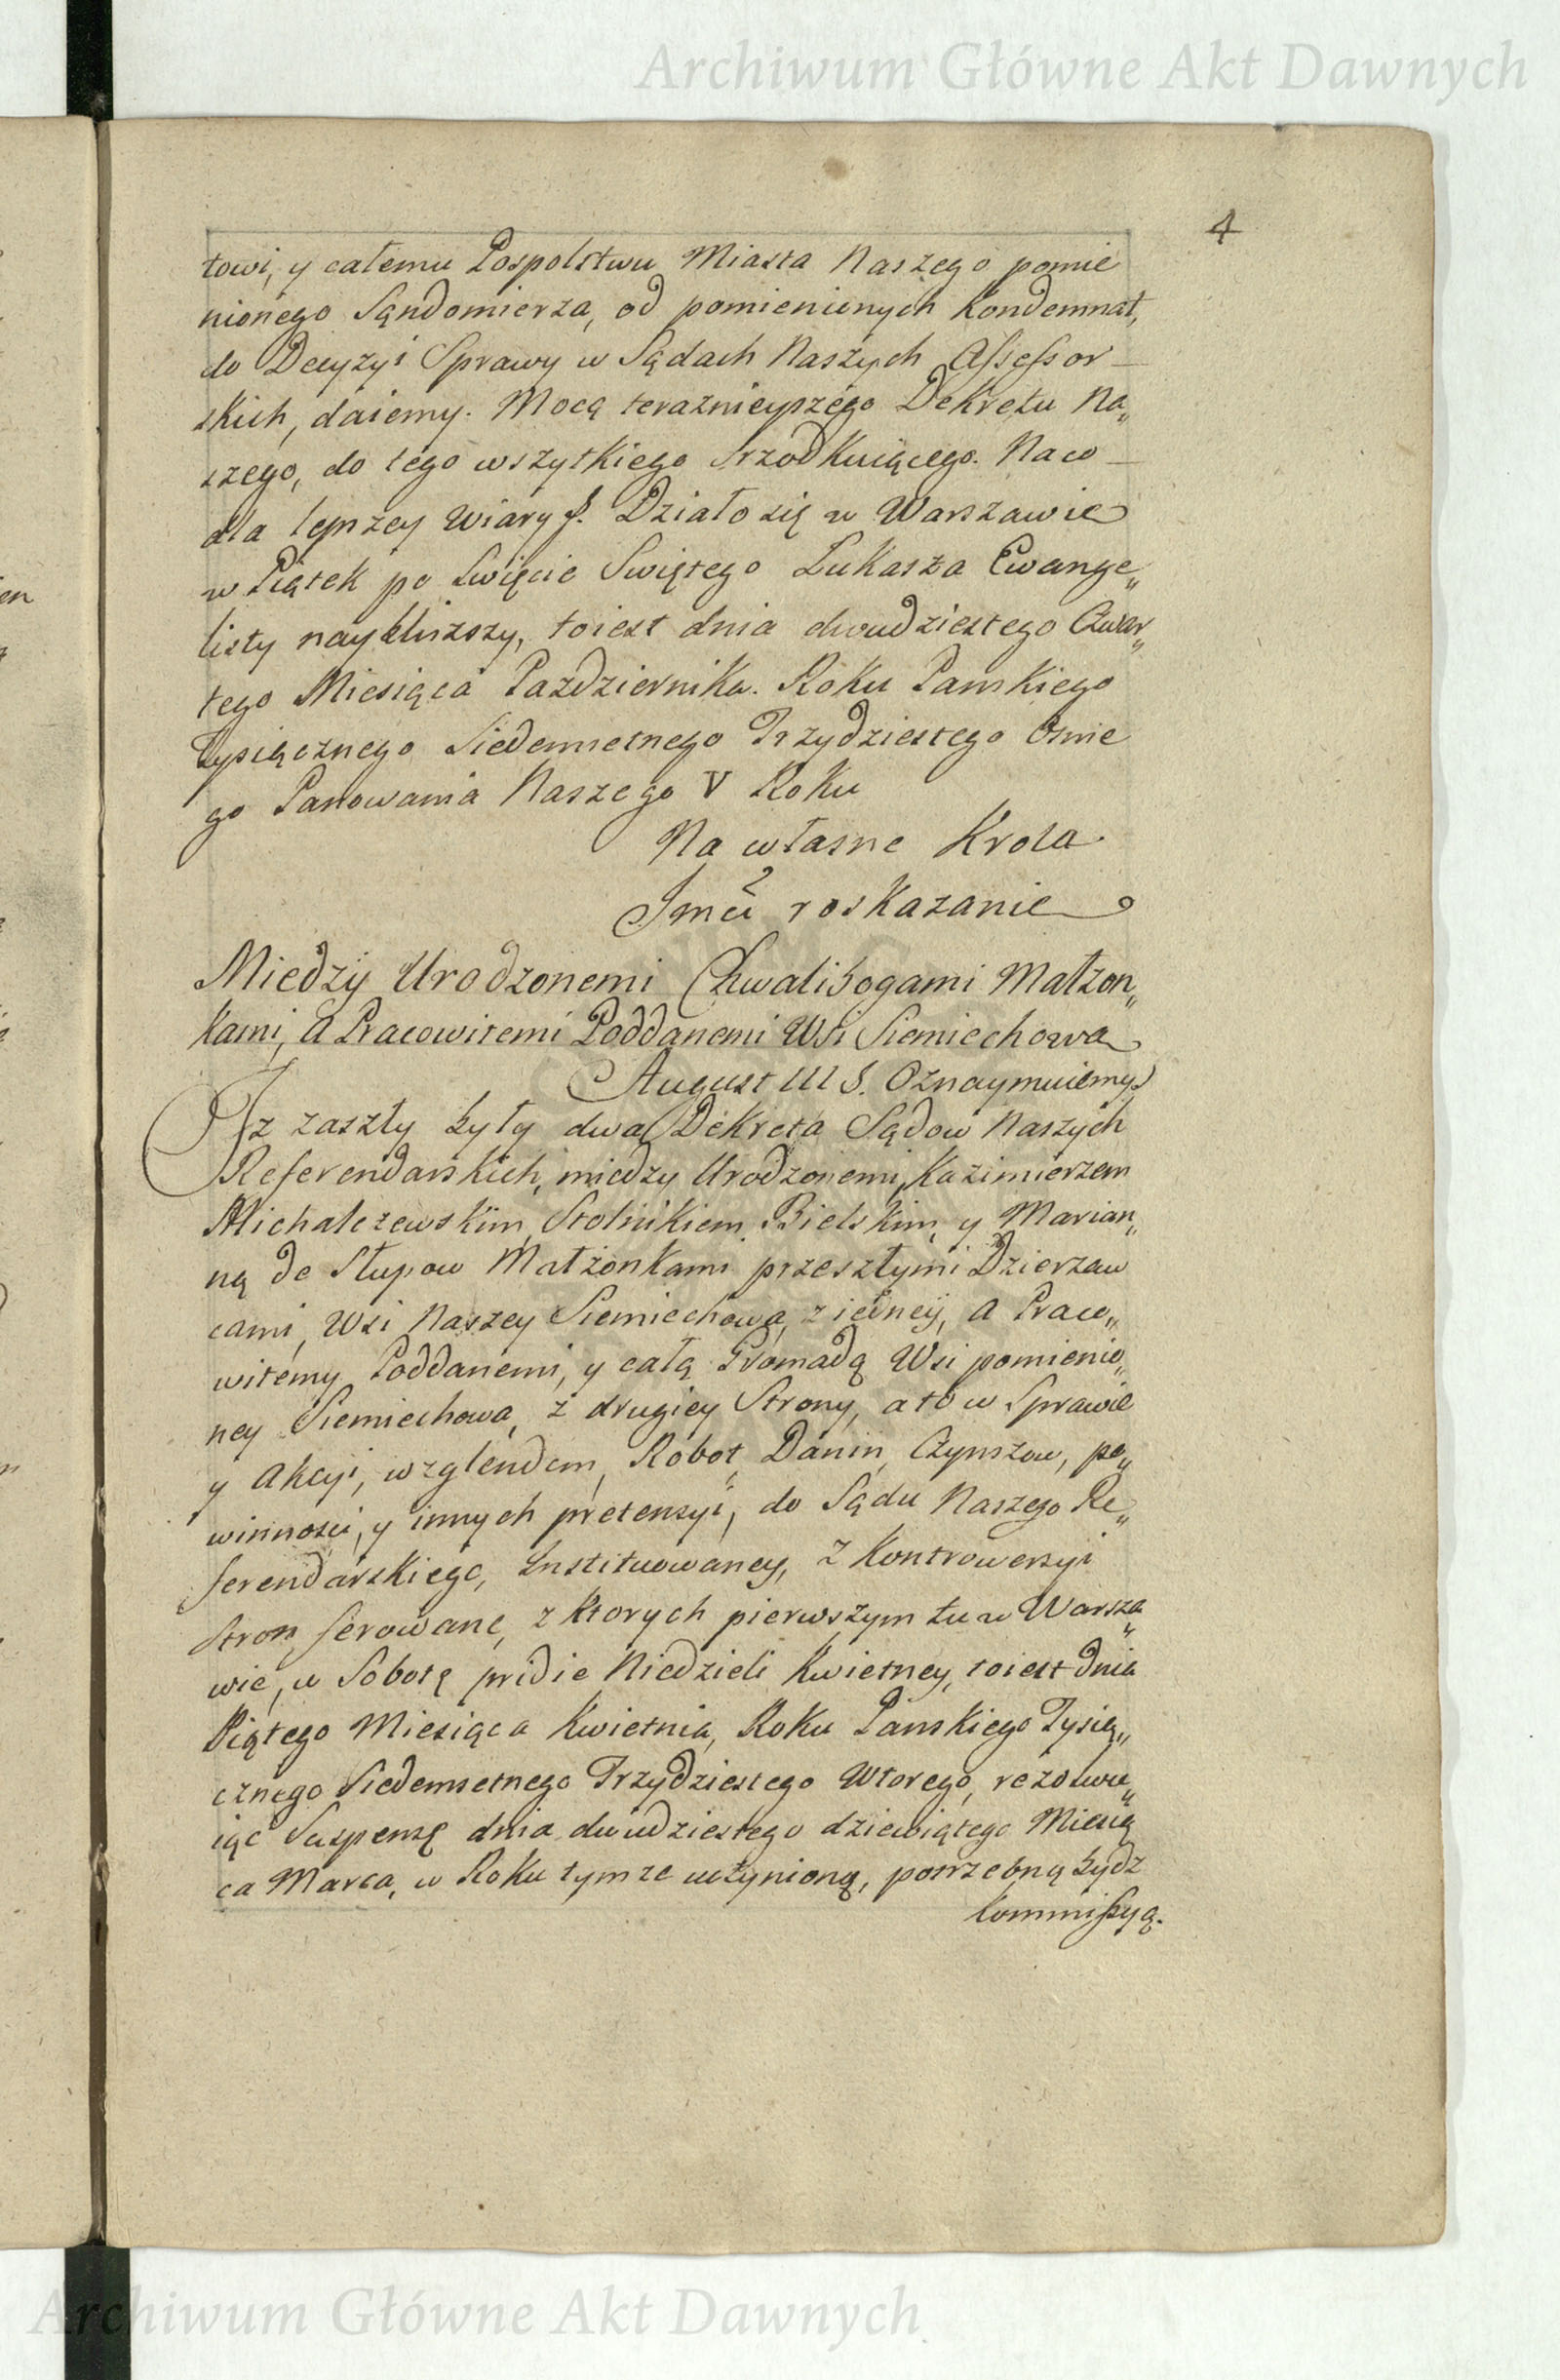 Archiwum Główne Akt Dawnych
4
towi, y całemu Pospolstwu Miasta Naszego pomie
nionego Sąndomierza, od pomienionych Kondemnat,
do Decyzyi Sprawy w Sądach Naszych Assessor–
skich, daiemy. Mocą teraznieyszego Dekretu Na„
szego, do tego wszytkiego srzodkuiącego. Naco–
dla lepszey Wiary &. Działo się w Warszawie
w Piątek po Swięcie Swiętego Łukasza Ewange„
listy naybliższy, toiest dnia dwudziestego Czwar„
tego Miesiąca Pazdziernika. Roku Panskiego
Tysiącznego Siedemsetnego Trzydziestego Osme
go Panowania Naszego V Roku
Na własne Krola
Jmci roskazanie
Miedzy Urodzonemi Chwalibogami Małzon„
kami, a Pracowitemi Poddanemi Wsi Siemiechowa
August III &. Oznaymuiemy
Iz zaszły były dwa Dekreta Sądow Naszych
Referendarskich, miedzy Urodzonemi, Kazimierzem
Michalczewskim, Stolnikiem Bielskim, y Marian„
ną de Słupow Małżonkami przeszłymi Dzierzaw
cami, Wsi Naszey Siemiechowa, z iedney, a Praco„
witemy Poddanemi, y całą Gromadą Wsi pomienio„
ney Siemiechowa, z drugiey Strony, a to w Sprawie
y Akcyi, wzglendem, Robot, Danin, Czynszow, po„
winnosci, y innych pretensyi, do Sądu Naszego Re„
ferendarskiego, Instituowaney, z Kontrowersyi
stron ferowane, z ktorych pierwszym tu w Warsza„
wie, w Sobotę pridie Niedzieli Kwietney, toiest dnia
Piątego Miesiąca Kwietnia, Roku Panskiego Tysią„
cznego Siedemsetnego Trzydziestego Wtorego, rezolwu„
iąc Suspensę dnia dwudziestego dziewiątego Miesią
ca Marca, w Roku tymze uczynioną, potrzebną bydz
Kommissyą.
Archiwum Główne Akt Dawnych